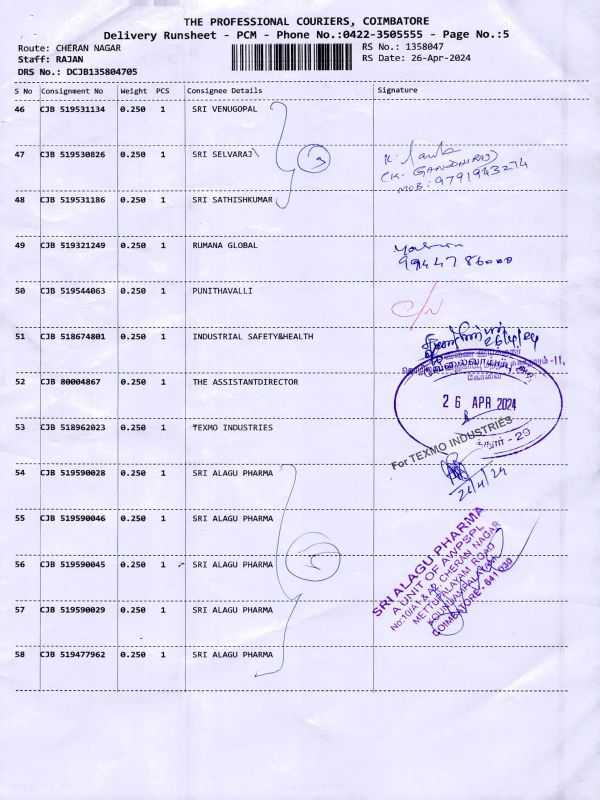 THE PROFESSIONAL COURIERS, COIMBATORE
Delivery Runsheet - PCM - Phone No.:0422-3505555 - Page No.:5
Route: CHERAN NAGAR
RS No.: 1358047
Staff: RAJAN
RS Date: 26-Apr-2024
DRS No.: DCJB135804705
S No Consignment No Weight PCS Consignee Details Signature
46 CJB 519531134 0.250 1 SRI VENUGOPAL
47 CJB 519530826 0.250 1 SRI SELVARAJ\
K.
(K. GANDHIRAJ)
MOB: 9791943274
48 CJB 519531186 0.250 1 SRI SATHISHKUMAR
49 CJB 519321249 0.250 1 RUMANA GLOBAL
50 CJB 519544063 0.250 1 PUNITHAVALLI
51 CJB 518674801 0.250 1 INDUSTRIAL SAFETY&HEALTH
26/4/24
52 CJB 80004867 0.250 1 THE ASSISTANTDIRECTOR
கோவை
26 APR 2024
53 CJB 518962023 1 0.250 1 TEXMO INDUSTRIES
For TEXMO INDUSTRIES
- 29
54 CJB 519590028 0.250 1 SRI ALAGU PHARMA
26/4/24
55 CJB 519590046 0.250 1 SRI ALAGU PHARMA
56 CJB 519590045 0.250 1 SRI ALAGU PHARMA
57 CJB 519590029 0.250 1 SRI ALAGU PHARMA
58 CJB 519477962 0.250 1 SRI ALAGU PHARMA
SRI ALAGU PHARMA
A UNIT OF AWPSPL
CHERAN NAGAR
METTUPALAYAM ROAD
KOUNDAMPALAYAM
COIMBATORE - 641 030